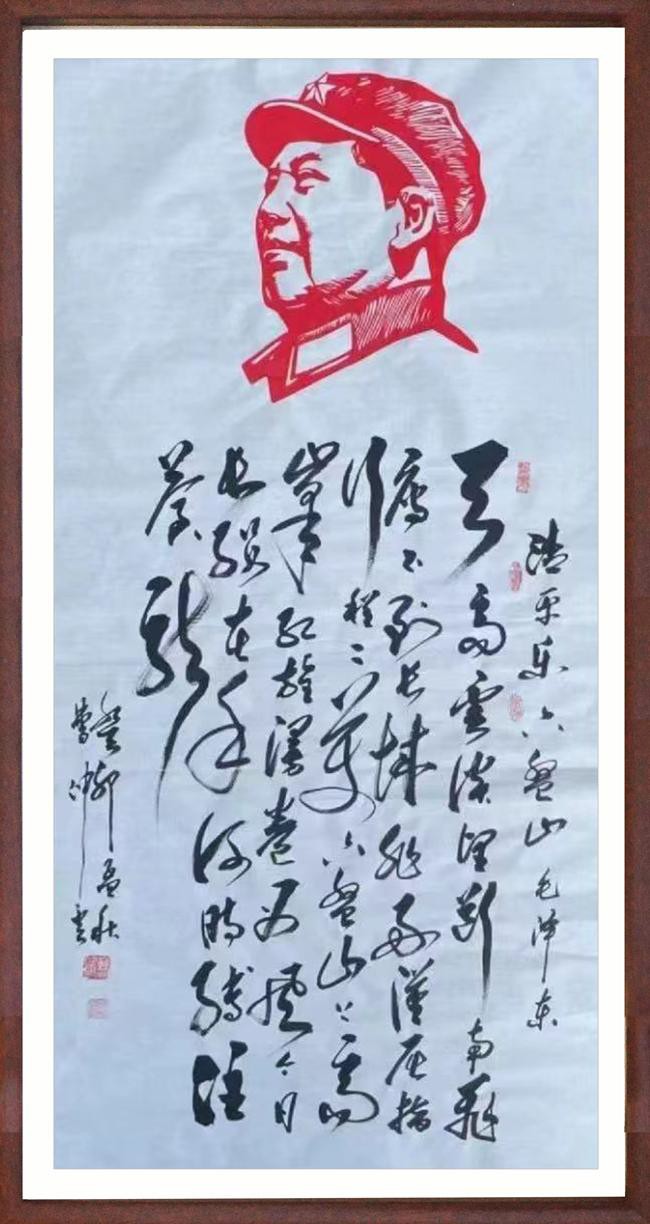 清平乐 六盘山 毛泽东
天高雲淡望断南飛
雁不到长城非好漢屈指
行程二萬六盘山上高
峰红旗漫卷西风今日
长缨在手何时缚住
苍龙
癸卯孟秋